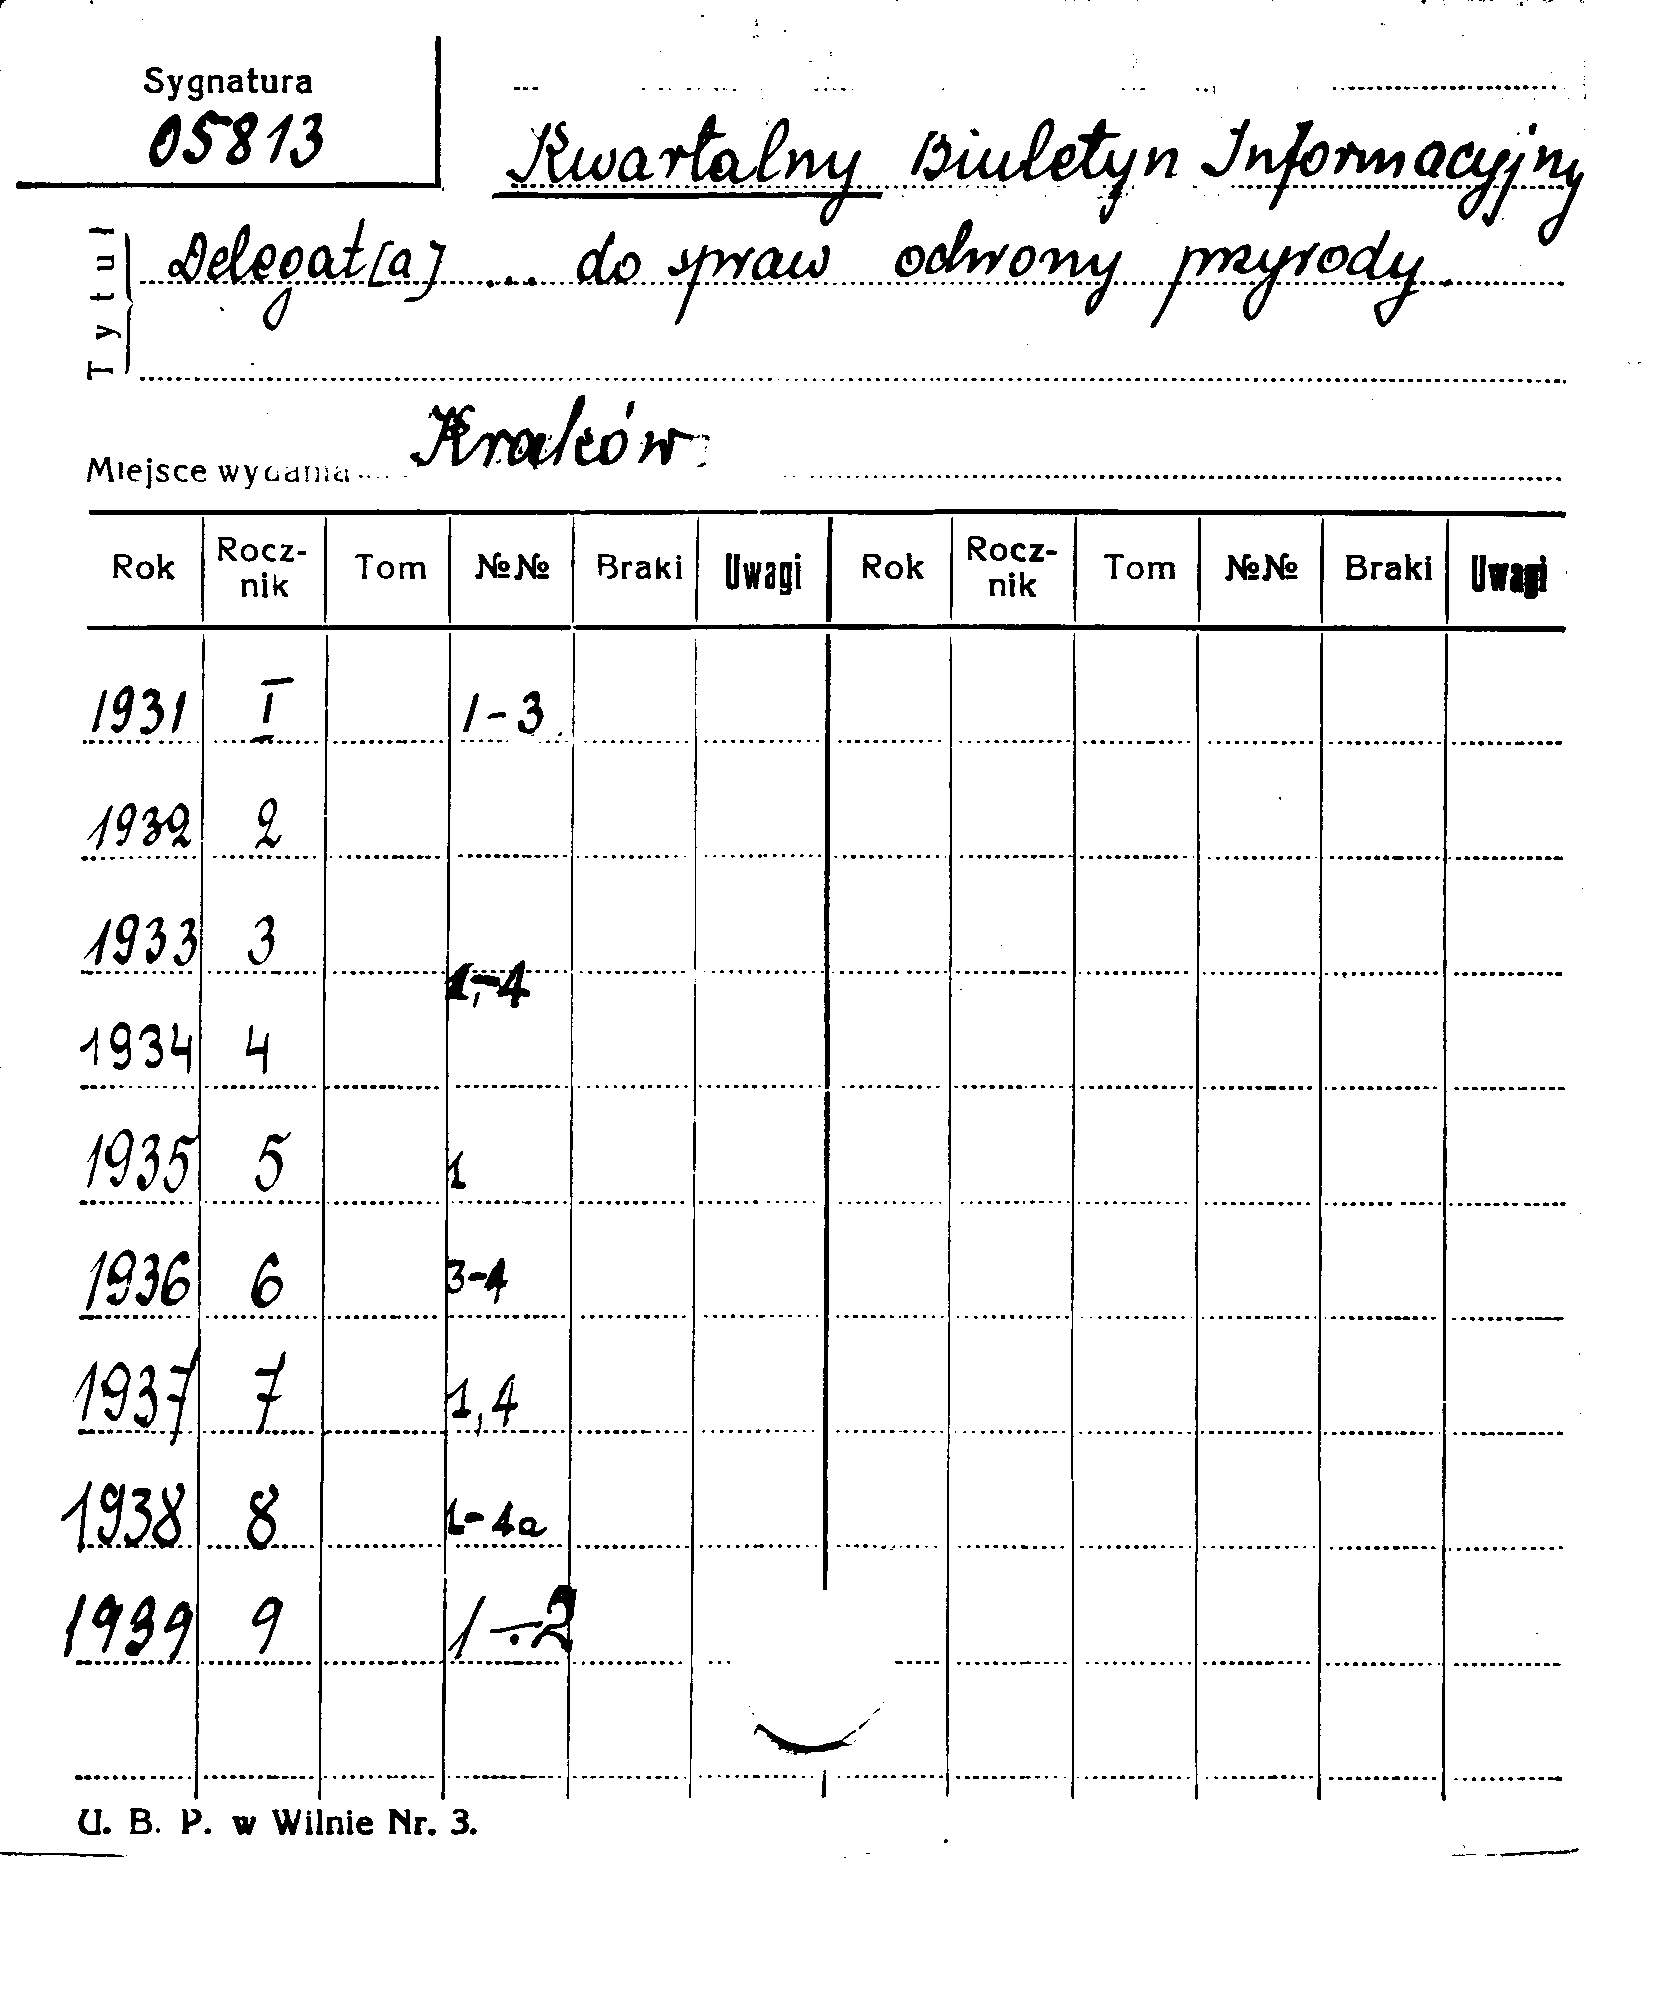 Sygnatura
05813
Kwartalny Biuletyn Informacyjny
Tytuł
Delegat[a] ... do spraw ochrony przyrody
Miejsce wydania Kraków
Rok Rocz-nik Tom №№ Braki Uwagi Rok Rocz-nik Tom №№ Braki Uwagi
1931 I 1-3
1932 2
1933 3
1,-4
1934 4
1935 5 1
1936 6 3-4
1937 7 1,4
1938 8 1-4a
1939 9 1÷2
U. B. P. w Wilnie Nr. 3.